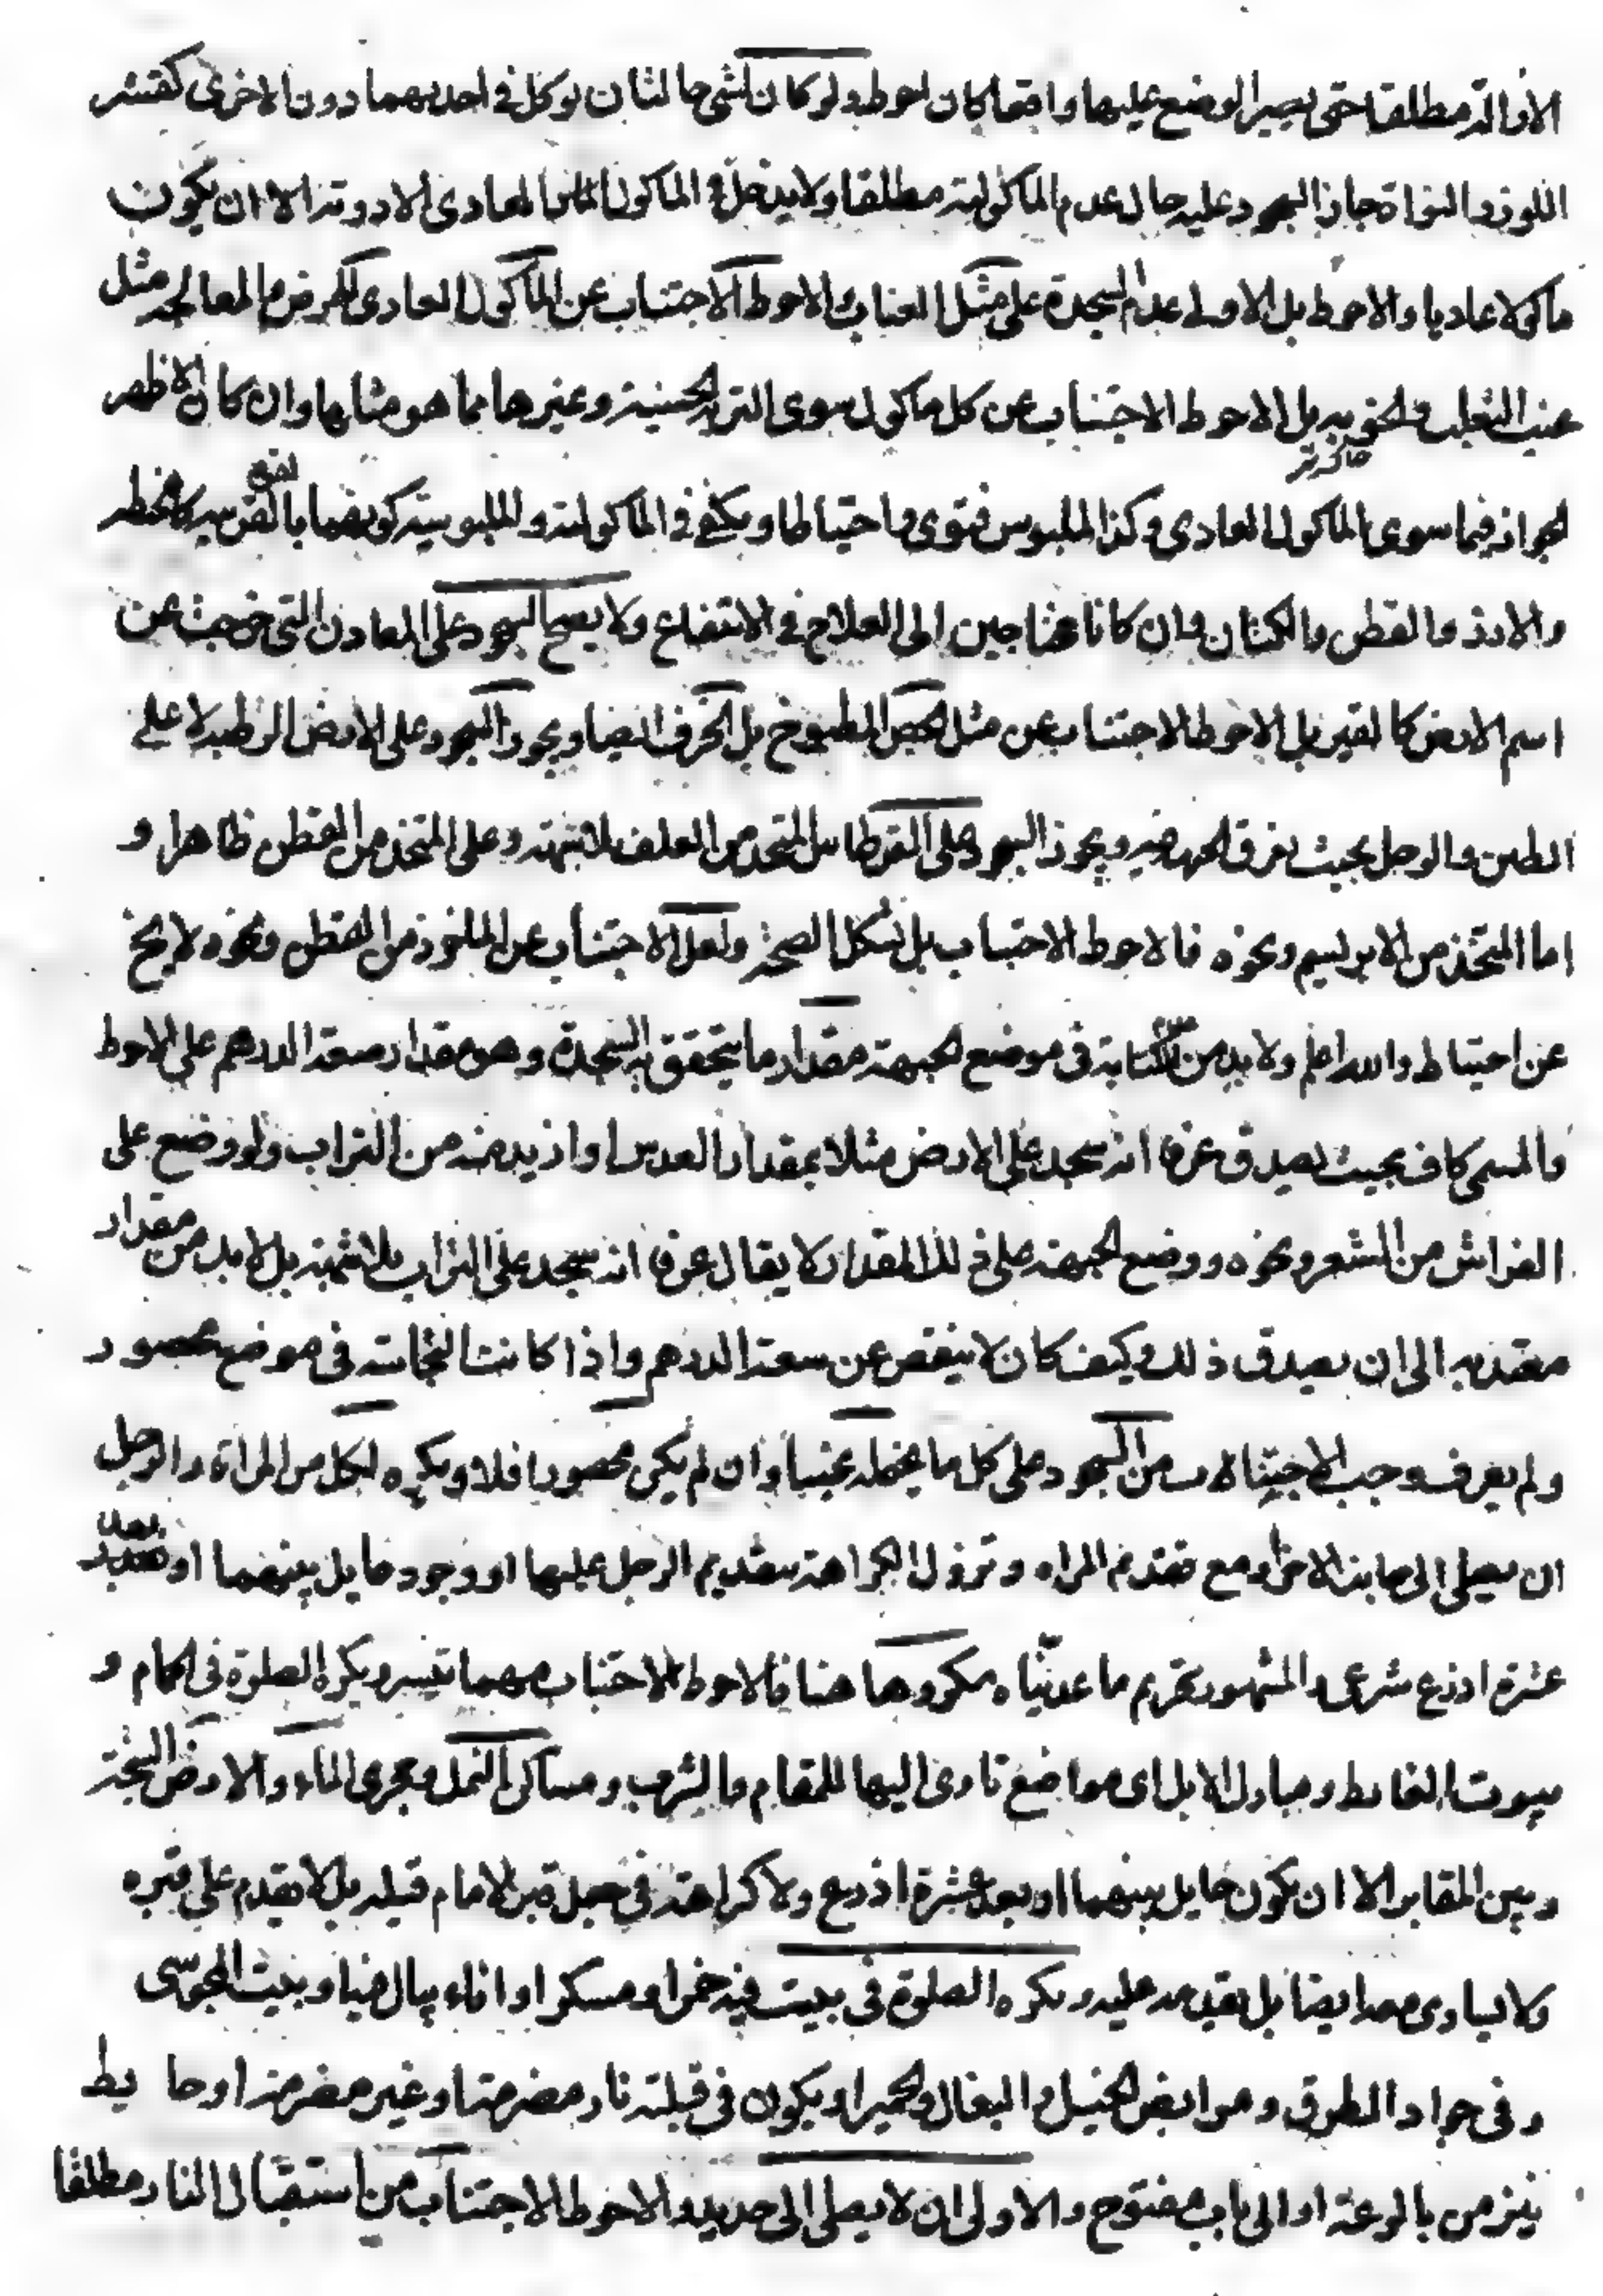 الا والد مطلقا حتى يصير الوضع عليها واقعا كان احوط ولو كان لشئ حالتان يوكل في احديهما دون الاخرى كقشر
اللوز والنواة جاز السجود عليه حال عدم الماكولية مطلقا ولا يدخل في الماكول العادى الادوية الا ان يكون
ماكولا عاديا والاحوط بل الاولى عدم السجدة على مثل العناب والاحوط الاجتناب عن الماكول العادى للمرض والمعالجة مثل
عنب الثعلب ونحوه بل الاحوط الاجتناب عن كل ماكول سوى التربة الحسينية وغيرها مما هو مثلها وان كان الاظهر
الجواز فيما سوى الماكول العادى وكذا الملبوس فتوى واحتياطا ويكفى في الماكولية والملبوسية كونهما بالقوة القريبة كالحنطة
والارز والقطن والكتان وان كانا محتاجين الى العلاج في الانتفاع ولا يصح السجود على المعادن التى خرجت عن
اسم الارض كالقير بل الاحوط الاجتناب عن مثل الجص المطبوخ بل الخزف ايضا ويجوز السجود على الارض الرطبة لا على
الطين والوحل بحيث يغرق الجبهة فيه ويجوز السجود على القرطاس المتخذ من العلف بلا شبهة وعلى المتخذ من القطن ظاهرا و
اما المتخذ من الابريسم ونحوه فالاحوط الاجتناب بل يشكل الصحة ولعل الاجتناب عن الماخوذ من القطن ونحوه لا يخ
عن احتياط والله اعلم ولا بد من في موضع الجبهة مقدار ما يتحقق به السجدة وهو مقدار سعة الدرهم على الاحوط
والمسمى كاف بحيث يصدق عرفا انه سجد على الارض مثلا بمقدار العدس او ازيد منه من التراب ولو وضع على
الفراش من الشعر ونحوه ووضع الجبهة على ذلك المقدار لا يقال عرفا انه سجد على التراب بلا شبهة بل لا بد من مقدار
معتد به الى ان يصدق ذلك وكيف كان لا ينقص عن سعة الدرهم واذا كانت النجاسة في موضع محصور
ولم يعرف وجب الاجتناب من السجود على كل ما يحتمله عينا وان لم يكن محصورا فلا ويكره لكل من المراة والرجل
ان يصلى الى جانب الاخر او مع تقدم المراه وتزول الكراهة بتقديم الرجل عليها او وجود حايل بينهما او بعد
عشرة اذرع شرعى والمشهور تحريم ما عدنّاه مكروها هنا فالاحوط الاجتناب مهما تيسر ويكره الصلوة في الحمام و
بيوت الغايط ومبارك الابل اى مواضع تاوى اليها للمقام والشرب ومساكن النمل ومجرى الماء والارض السبخة
وبين المقابر الا ان يكون حايل بينهما او بعد عشرة اذرع ولا كراهة في جعل قبر الامام قبله بل لا يقدم على قبره
ولا يساوى معه ايضا بل يقدمه عليه ويكره الصلوة في بيت فيه خمر او مسكر او اناء يبال فيها وبيت المجوسى
وفى جواد الطرق ومرابض الخيل والبغال والحمير او يكون في قبلته نار مضرمة او غير مضرمة او حايط
ينز من بالوعة او الى باب مفتوح والاولى ان لا يصلى الى حديد والاحوط الاجتناب من استقبال النار مطلقا